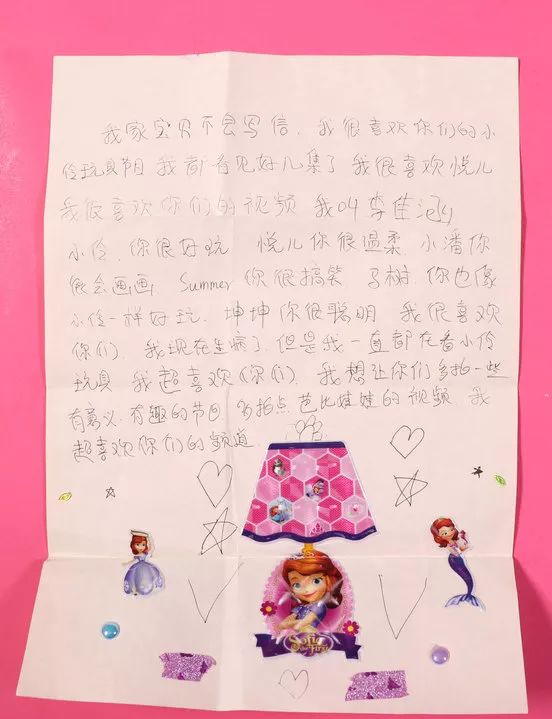 我家宝贝不会写信，我很喜欢你们的小
伶玩具节目 我都看见好几集了 我很喜欢悦儿
我很喜欢你们的视频 我叫李佳涵
小伶，你很好玩 悦儿你很温柔 小潘你
很会画画 Summer 你很搞笑 子树，你也像
小伶一样好玩，坤坤你很聪明 我很喜欢
你们，我现在生病了，但是我一直都在看小伶
玩具 我超喜欢你们，我想让你们多拍一些
有意义，有趣的节目，多拍点芭比娃娃的视频，我
超喜欢你们的频道，
Sofia
the First